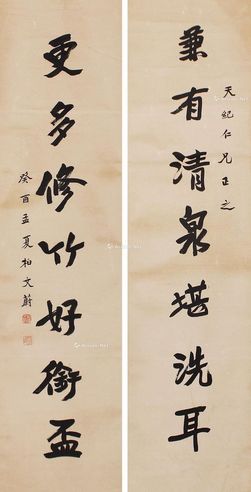 兼有清泉堪洗耳
天紀仁兄正之
更多修竹好銜盃
癸酉孟夏柏文蔚